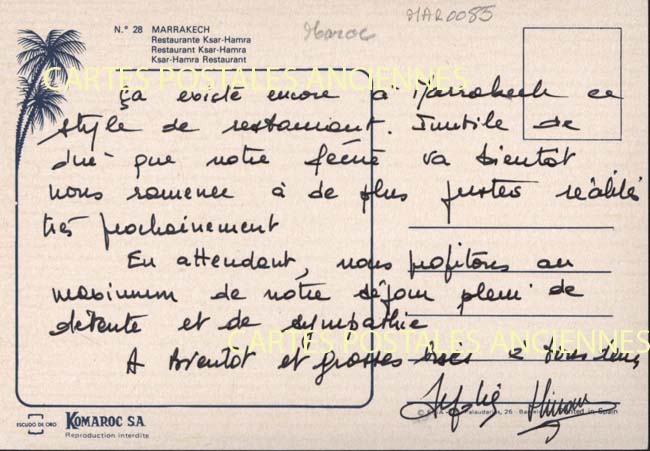 N.° 28 MARRAKECH
Restaurante Ksar-Hamra
Restaurant Ksar-Hamra
Ksar-Hamra Restaurant
Maroc
MAR0085
CARTES POSTALES ANCIENNES
Ça existe encore à Marrakech ce
style de restaurant. Inutile de
dire que notre féérie va bientôt
nous ramener à de plus justes réalités
très prochainement
En attendant, nous profitons au
maximum de notre séjour plein de
détente et de sympathie
CARTES POSTALES ANCIENNES
A Bientôt et grosses bises à tous
ESCUDO DE ORO
KOMAROC S.A.
Reproduction interdite
26 - Printed in Spain